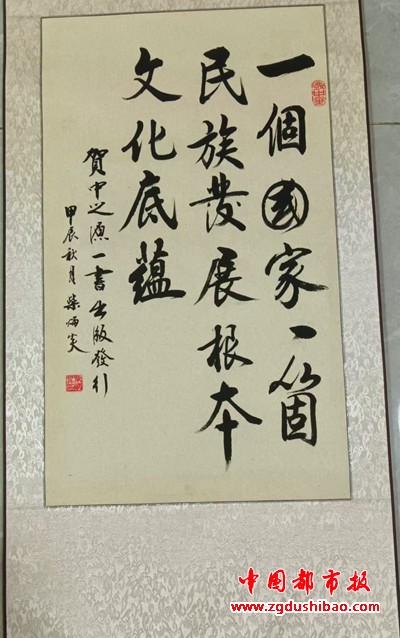 一個國家一箇
民族發展根本
文化底蘊
賀中之源一書出版發行
甲辰秋月
中国都市报
www.zgdushibao.com